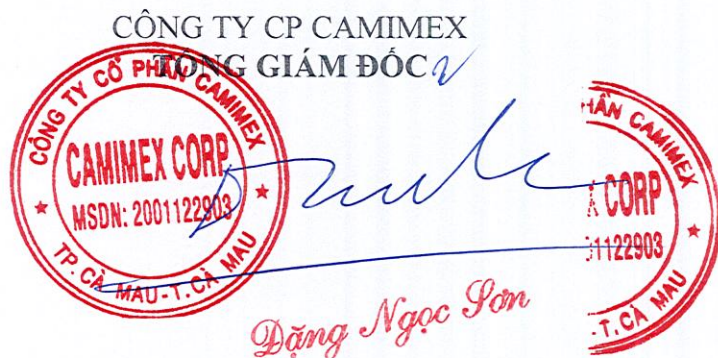 CÔNG TY CP CAMIMEX
TỔNG GIÁM ĐỐC
CÔNG TY CỔ PHẦN CAMIMEX
CAMIMEX CORP
MSDN: 2001122903
★ TP. CÀ MAU - T. CÀ MAU ★
HẦN CAMIMEX
X CORP
01122903
- T. CÀ MAU ★
Đặng Ngọc Sơn